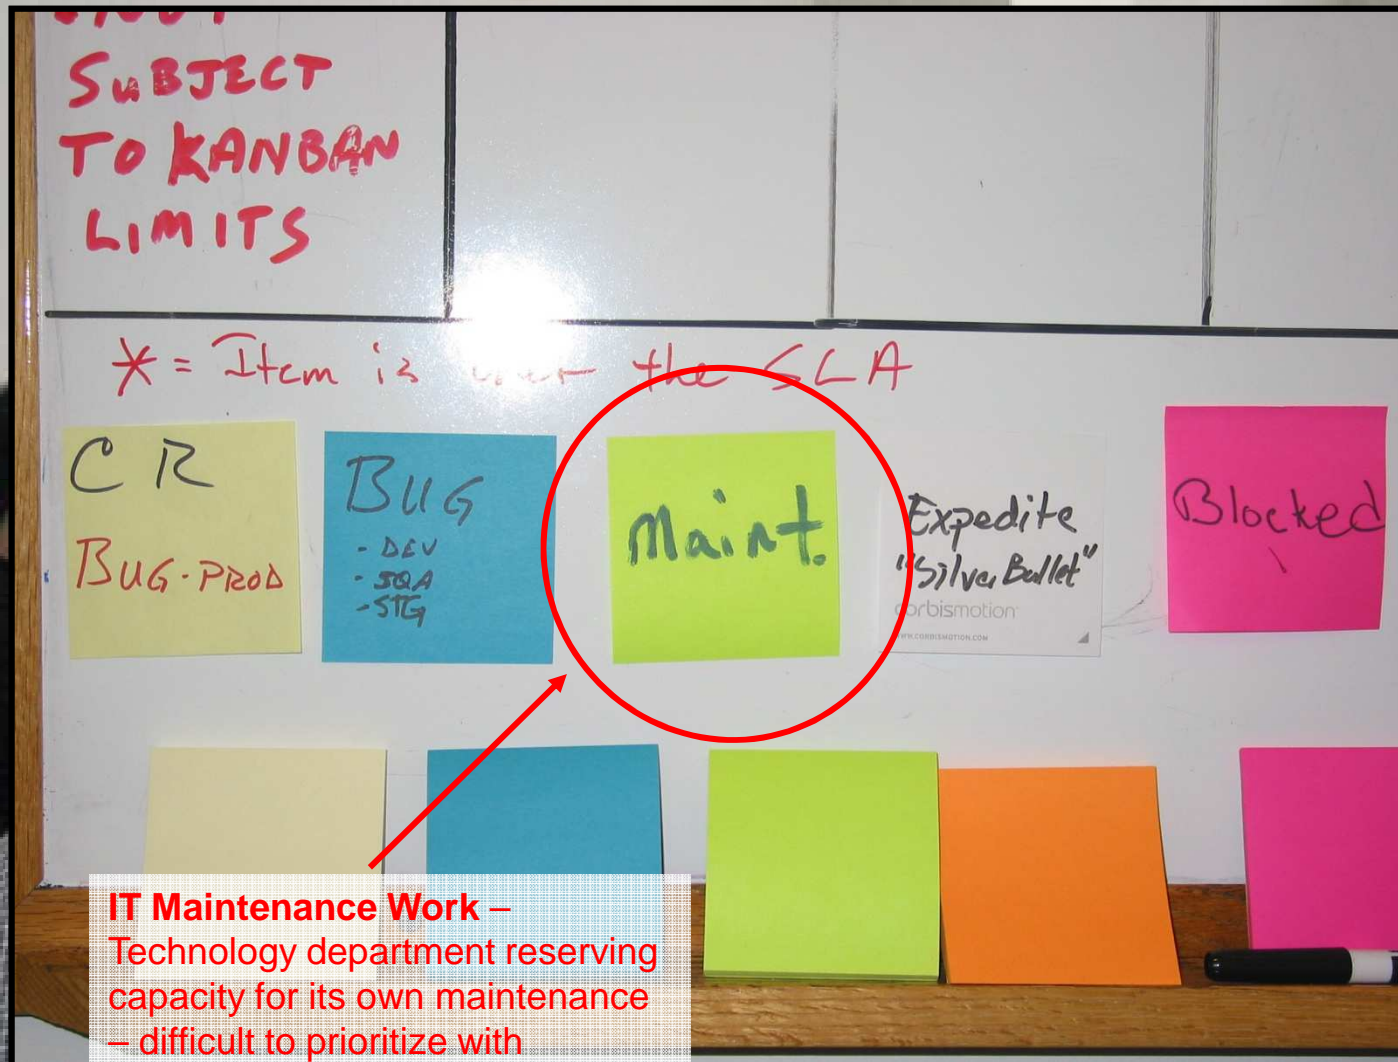 SUBJECT
TO KANBAN
LIMITS
* = Item is over the SLA
CR
BUG-PROD
BUG
- DEV
- SQA
- STG
Maint.
Expedite
"Silver Bullet"
corbismotion
WWW.CORBISMOTION.COM
Blocked
IT Maintenance Work –
Technology department reserving
capacity for its own maintenance
– difficult to prioritize with